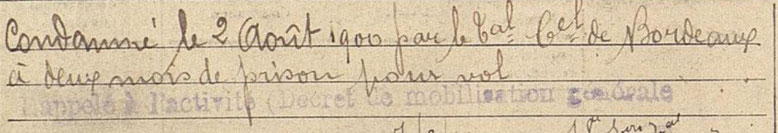 Condamné le 2 Août 1900 par le Tal Cel de Bordeaux
à deux mois de prison pour vol
Rappelé à l'activité (Décret de mobilisation générale